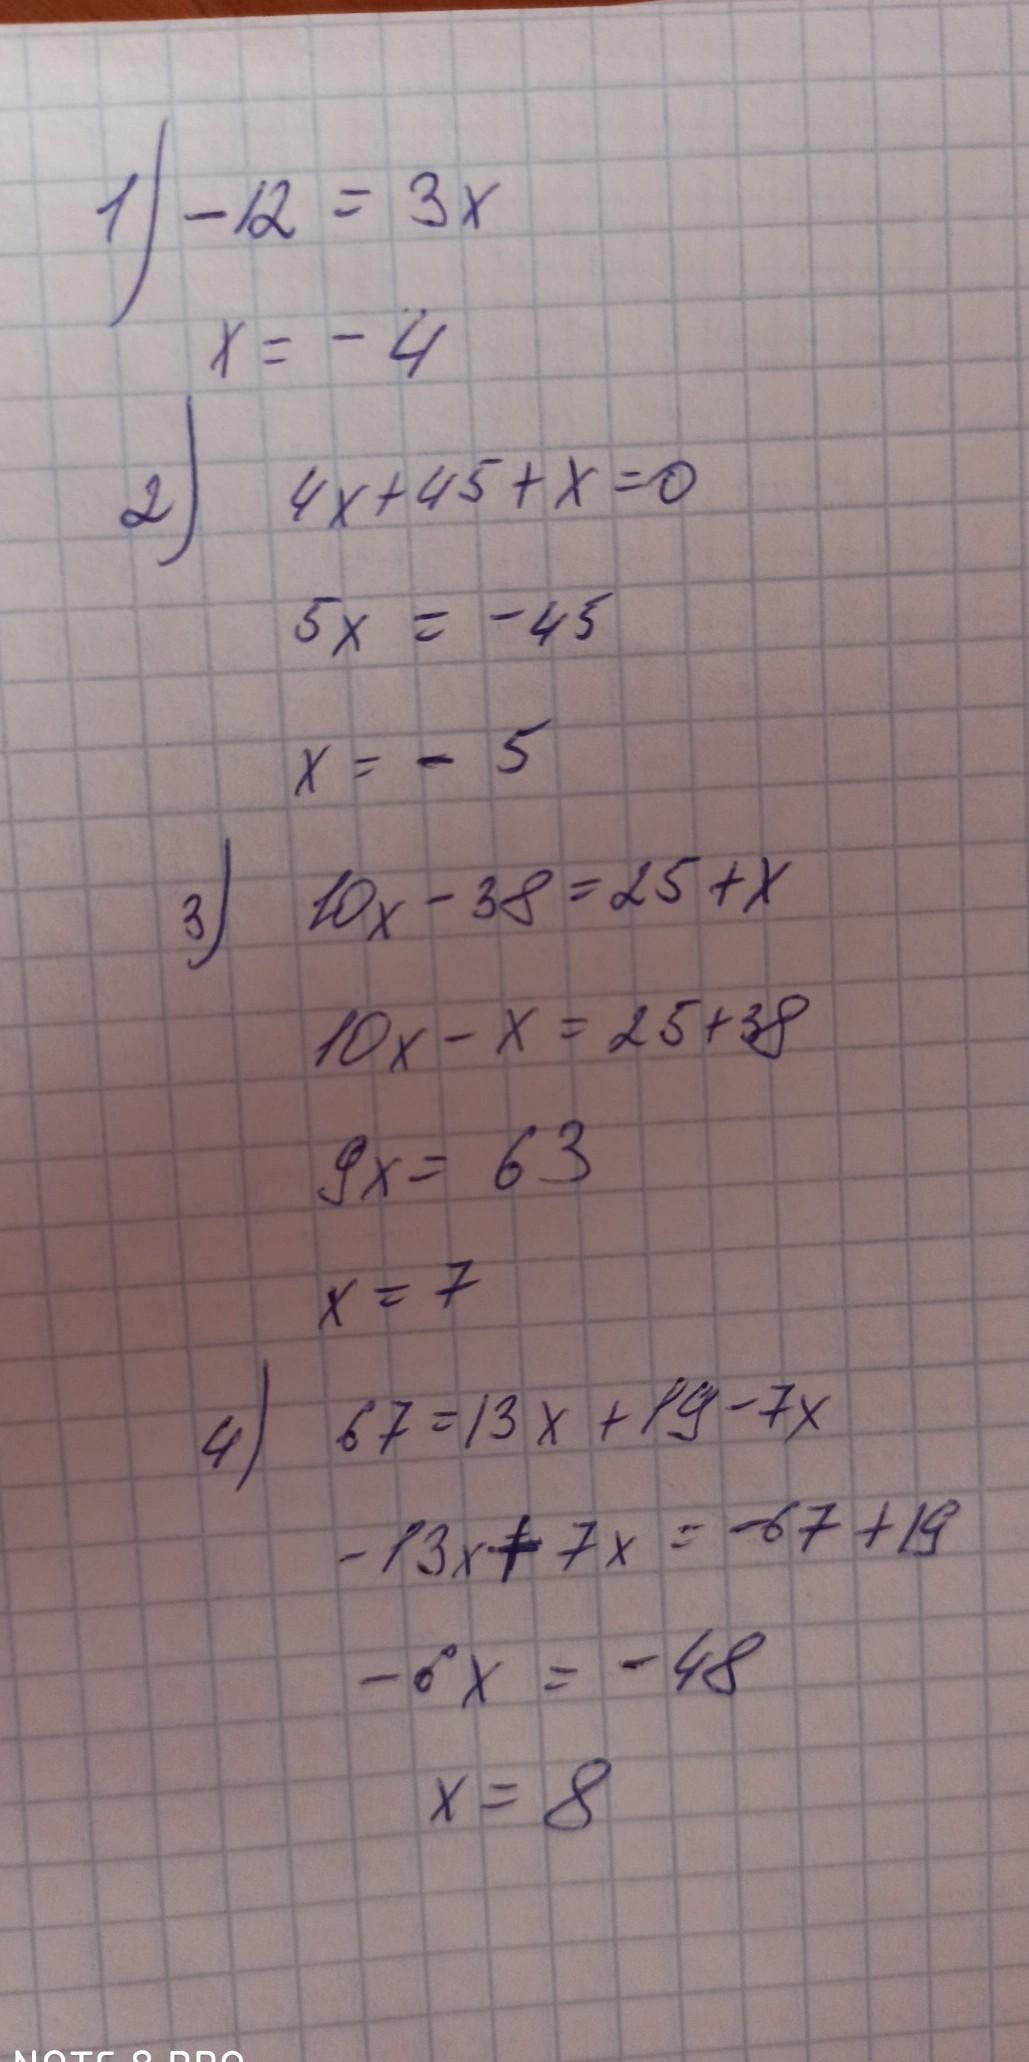 1) -12 = 3x
x = - 4
2) 4x+45+x=0
5x = -45
x = - 5
3) 10x-38=25+x
10x-x=25+38
9x= 63
x=7
4) 67=13x+19-7x
-13x+7x = -67+19
-6x = -48
x=8
NOTE 8 PRO